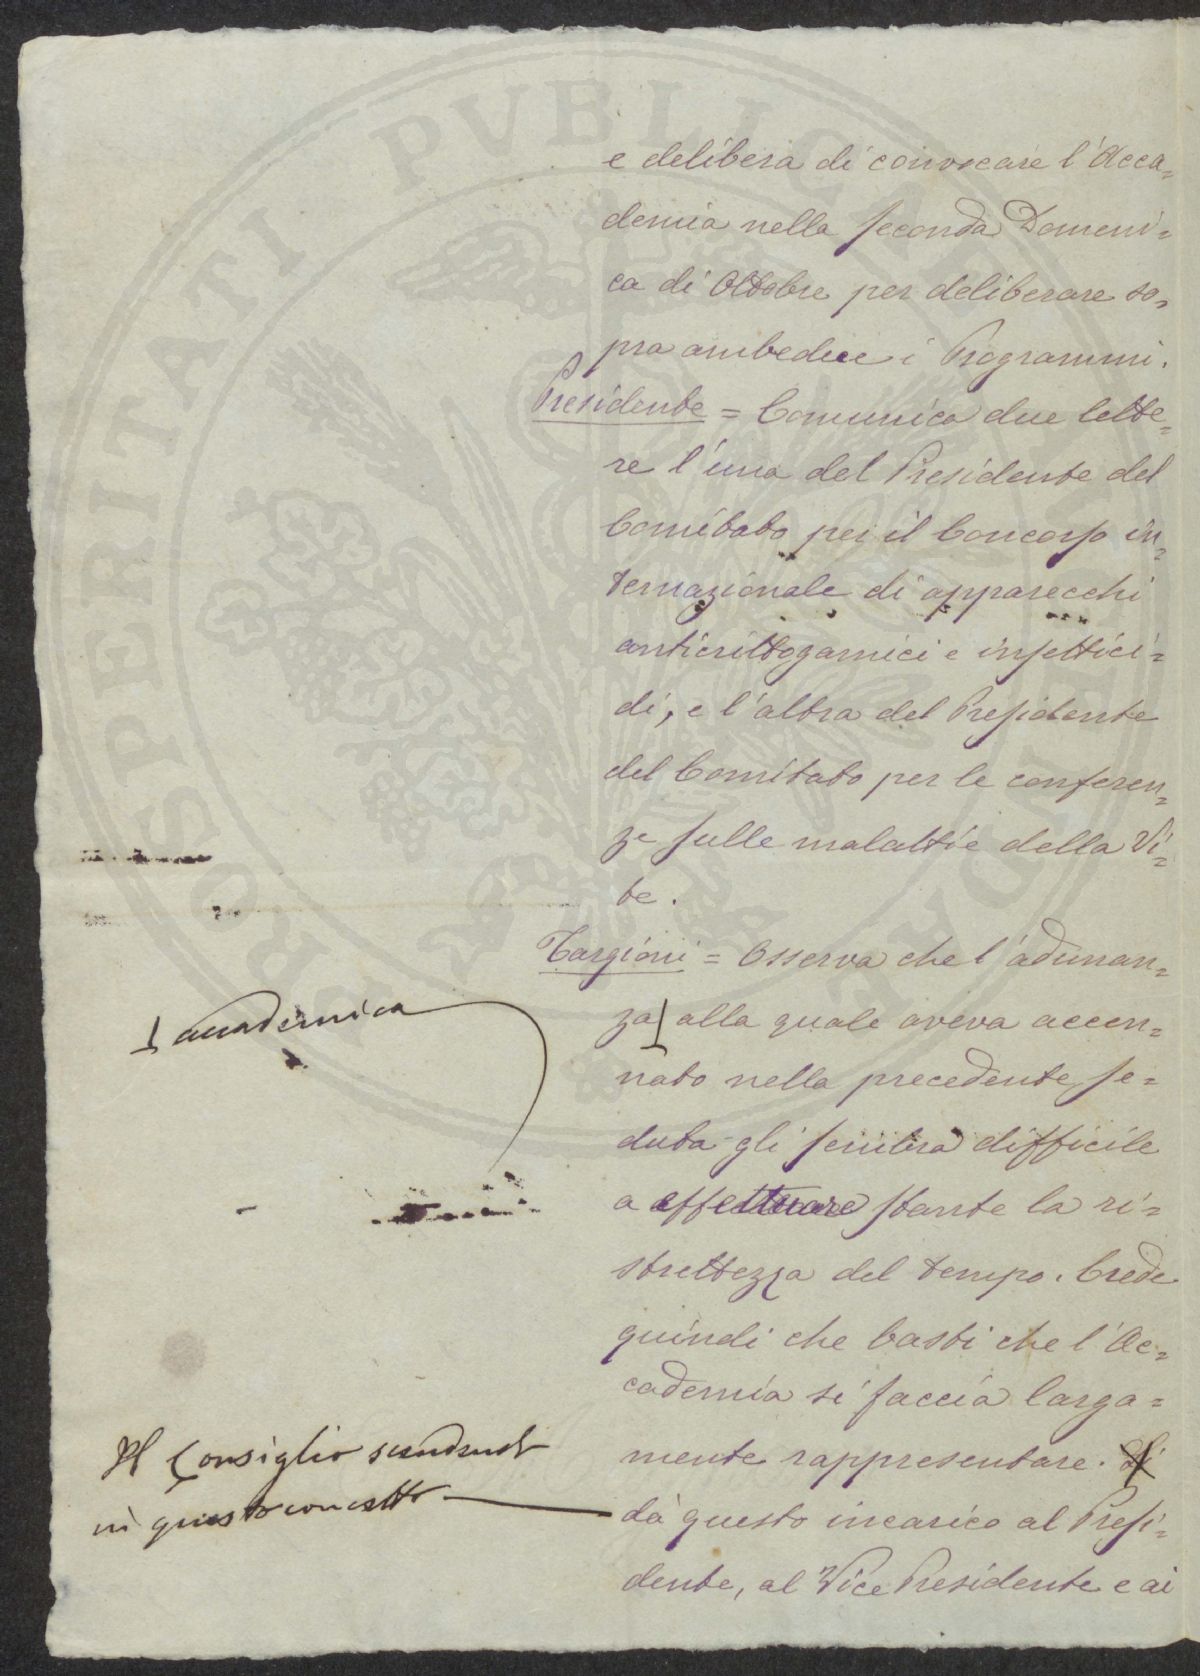 e delibera di convocare l'Acca=
demia nella seconda Domeni=
ca di Ottobre per deliberare so=
pra ambedue i Programmi.
Presidente = Comunica due lette=
re l'una del Presidente del
Comitato per il Concorso in=
ternazionale di apparecchi
anticrittogamici e insettici=
di, e l'altra del Presidente
del Comitato per le conferen=
ze sulle malattie della Vi=
te.
Targioni = Osserva che l'adunan=
za alla quale aveva accen=
accademica
nato nella precedente se=
duta gli sembra difficile
a effettuare stante la ri=
strettezza del tempo. Crede
quindi che basti che l'Ac=
cademia si faccia larga=
mente rappresentare. Si
Il Consiglio scendendo
in questo concetto
dà questo incarico al Presi=
dente, al Vice Presidente e ai
PROSPERITATI PVBLICAE AVGENDAE